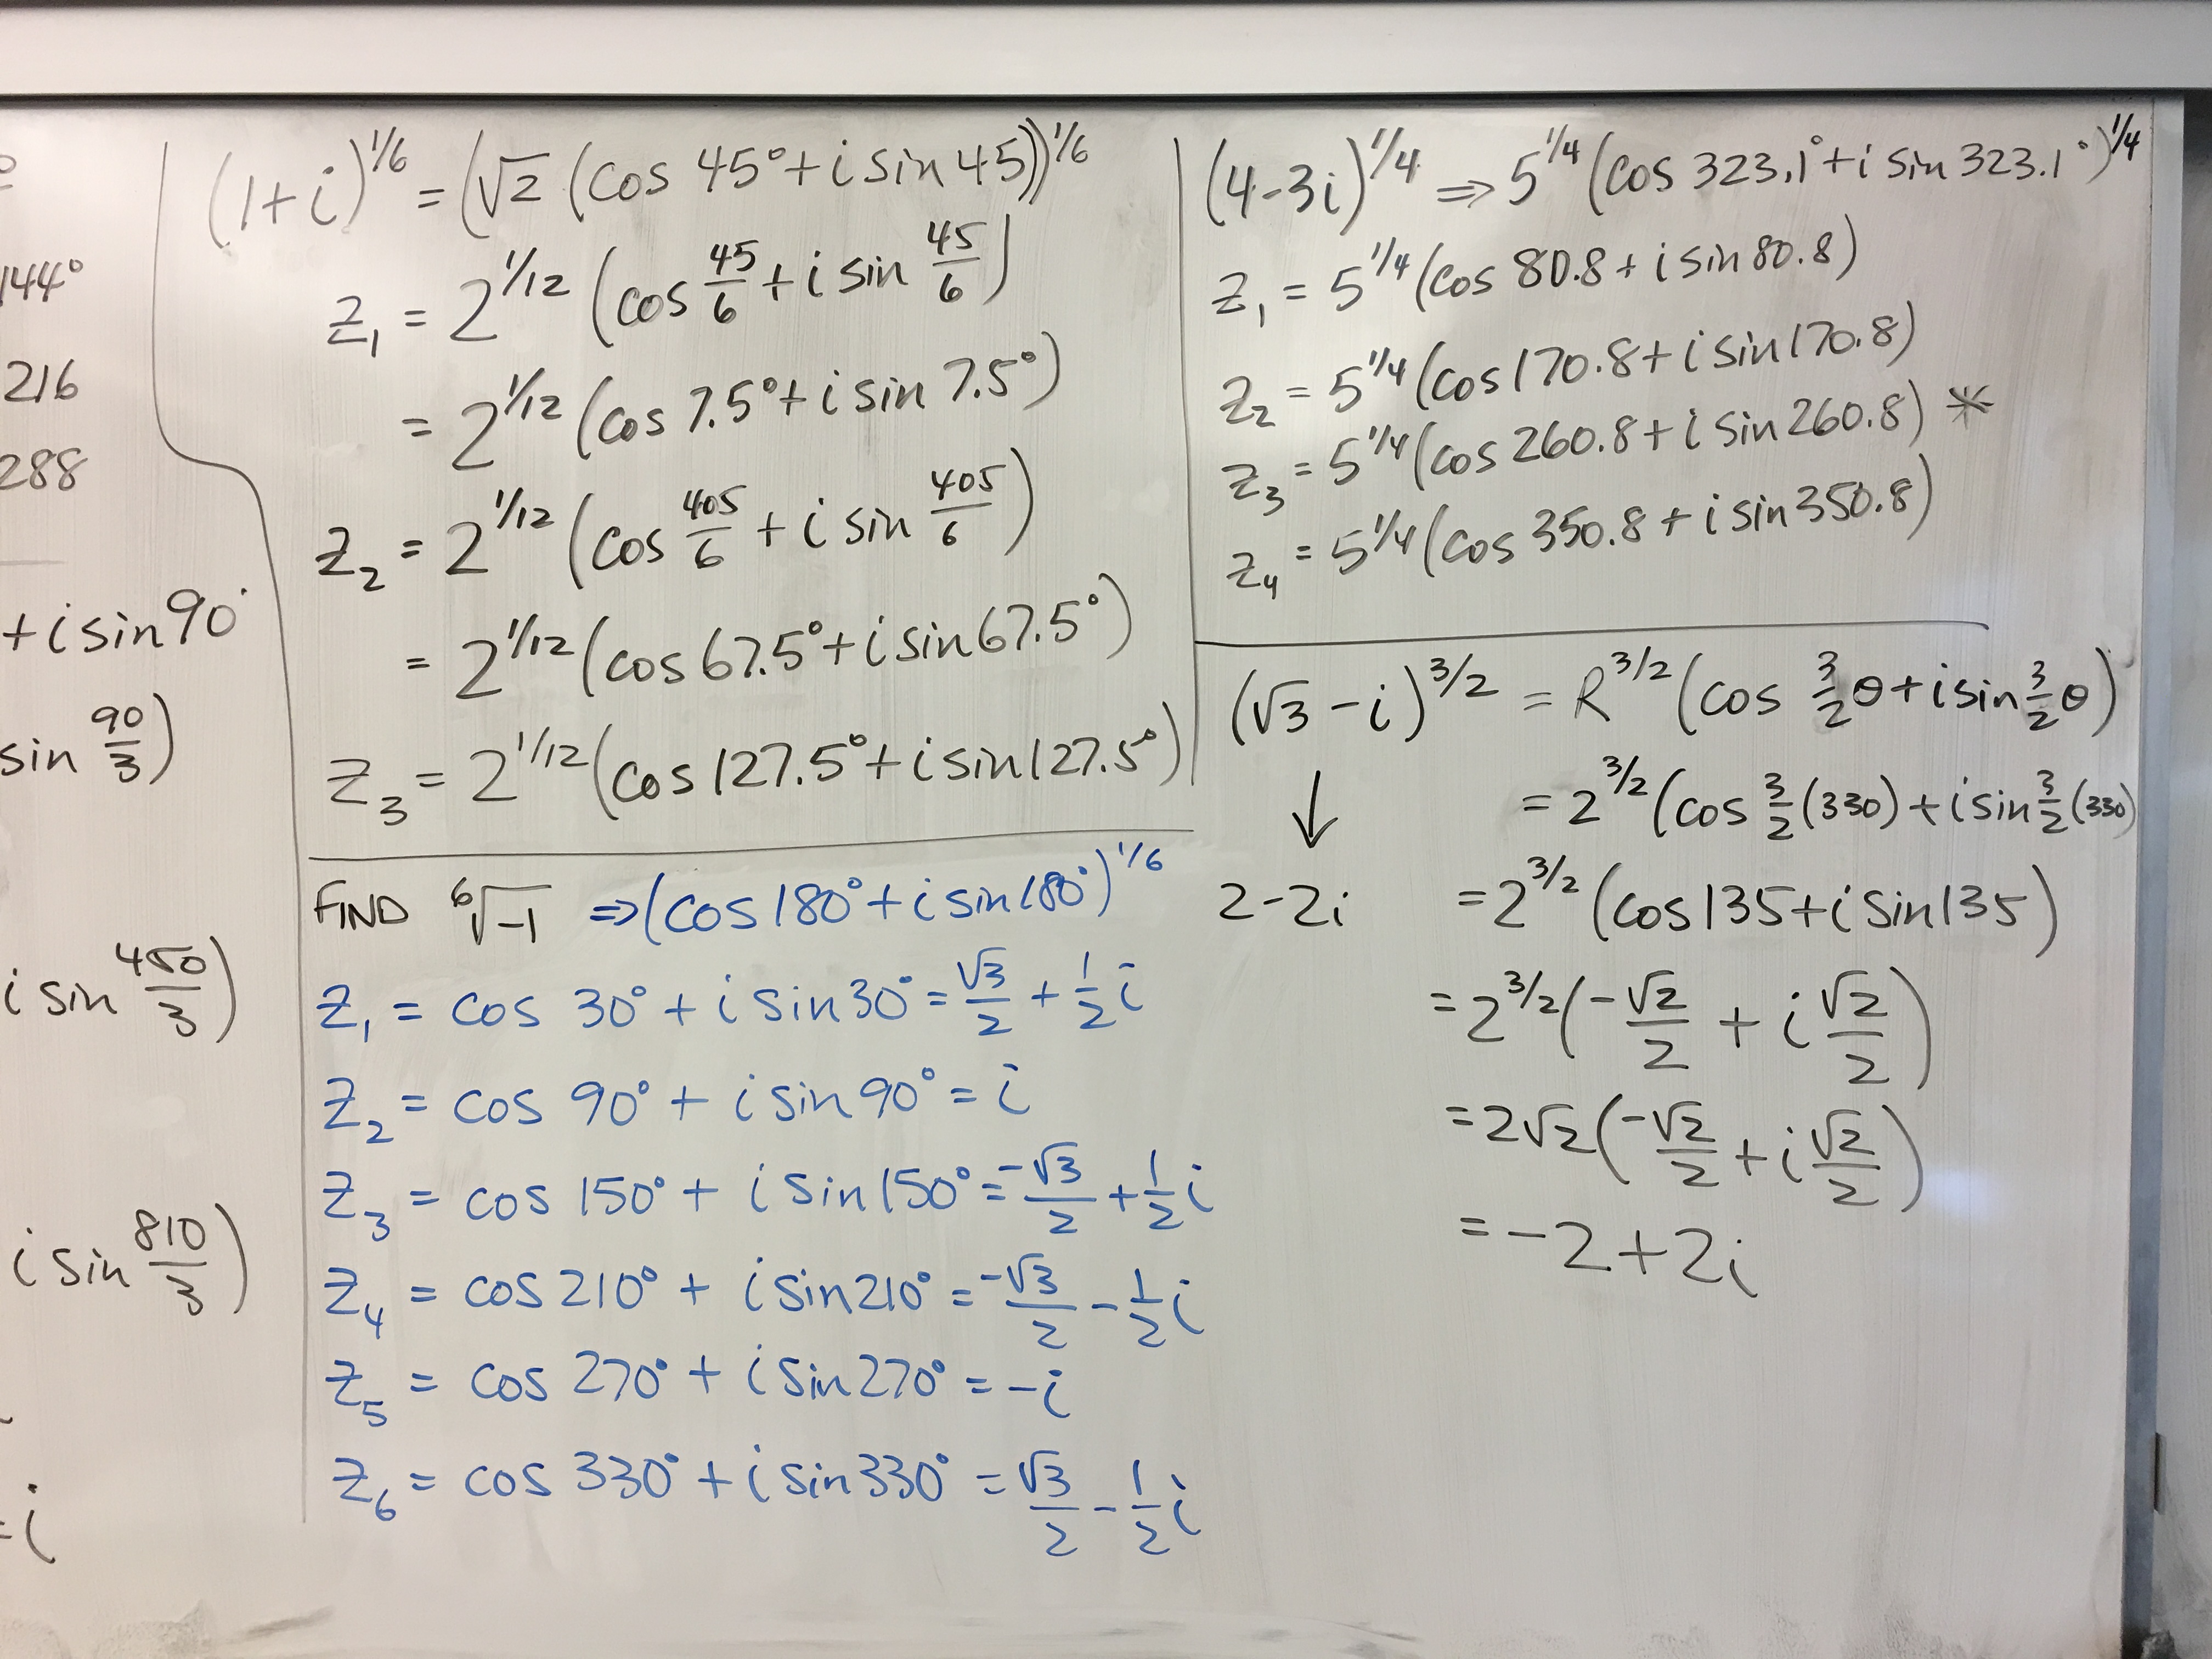 144°
216
288
+ i sin 90°
sin 90/3)
i sin 450/3)
i sin 810/3)
= i
(1+i)^1/6 = (√2 (cos 45° + i sin 45))^1/6
z₁ = 2^1/12 (cos 45/6 + i sin 45/6)
= 2^1/12 (cos 7.5° + i sin 7.5°)
z₂ = 2^1/12 (cos 405/6 + i sin 405/6)
= 2^1/12 (cos 67.5° + i sin 67.5°)
z₃ = 2^1/12 (cos 127.5° + i sin 127.5°)
FIND ⁶√-1 ⇒ (cos 180° + i sin 180°)^1/6
z₁ = cos 30° + i sin 30° = √3/2 + 1/2 i
z₂ = cos 90° + i sin 90° = i
z₃ = cos 150° + i sin 150° = -√3/2 + 1/2 i
z₄ = cos 210° + i sin 210° = -√3/2 - 1/2 i
z₅ = cos 270° + i sin 270° = -i
z₆ = cos 330° + i sin 330° = √3/2 - 1/2 i
(4-3i)^1/4 ⇒ 5^1/4 (cos 323.1° + i sin 323.1°)^1/4
z₁ = 5^1/4 (cos 80.8 + i sin 80.8)
z₂ = 5^1/4 (cos 170.8 + i sin 170.8)
z₃ = 5^1/4 (cos 260.8 + i sin 260.8) *
z₄ = 5^1/4 (cos 350.8 + i sin 350.8)
(√3 - i)^3/2 = R^3/2 (cos 3/2 θ + i sin 3/2 θ)
↓ = 2^3/2 (cos 3/2 (330) + i sin 3/2 (330)
2-2i = 2^3/2 (cos 135 + i sin 135)
= 2^3/2 (-√2/2 + i √2/2)
= 2√2 (-√2/2 + i √2/2)
= -2 + 2i